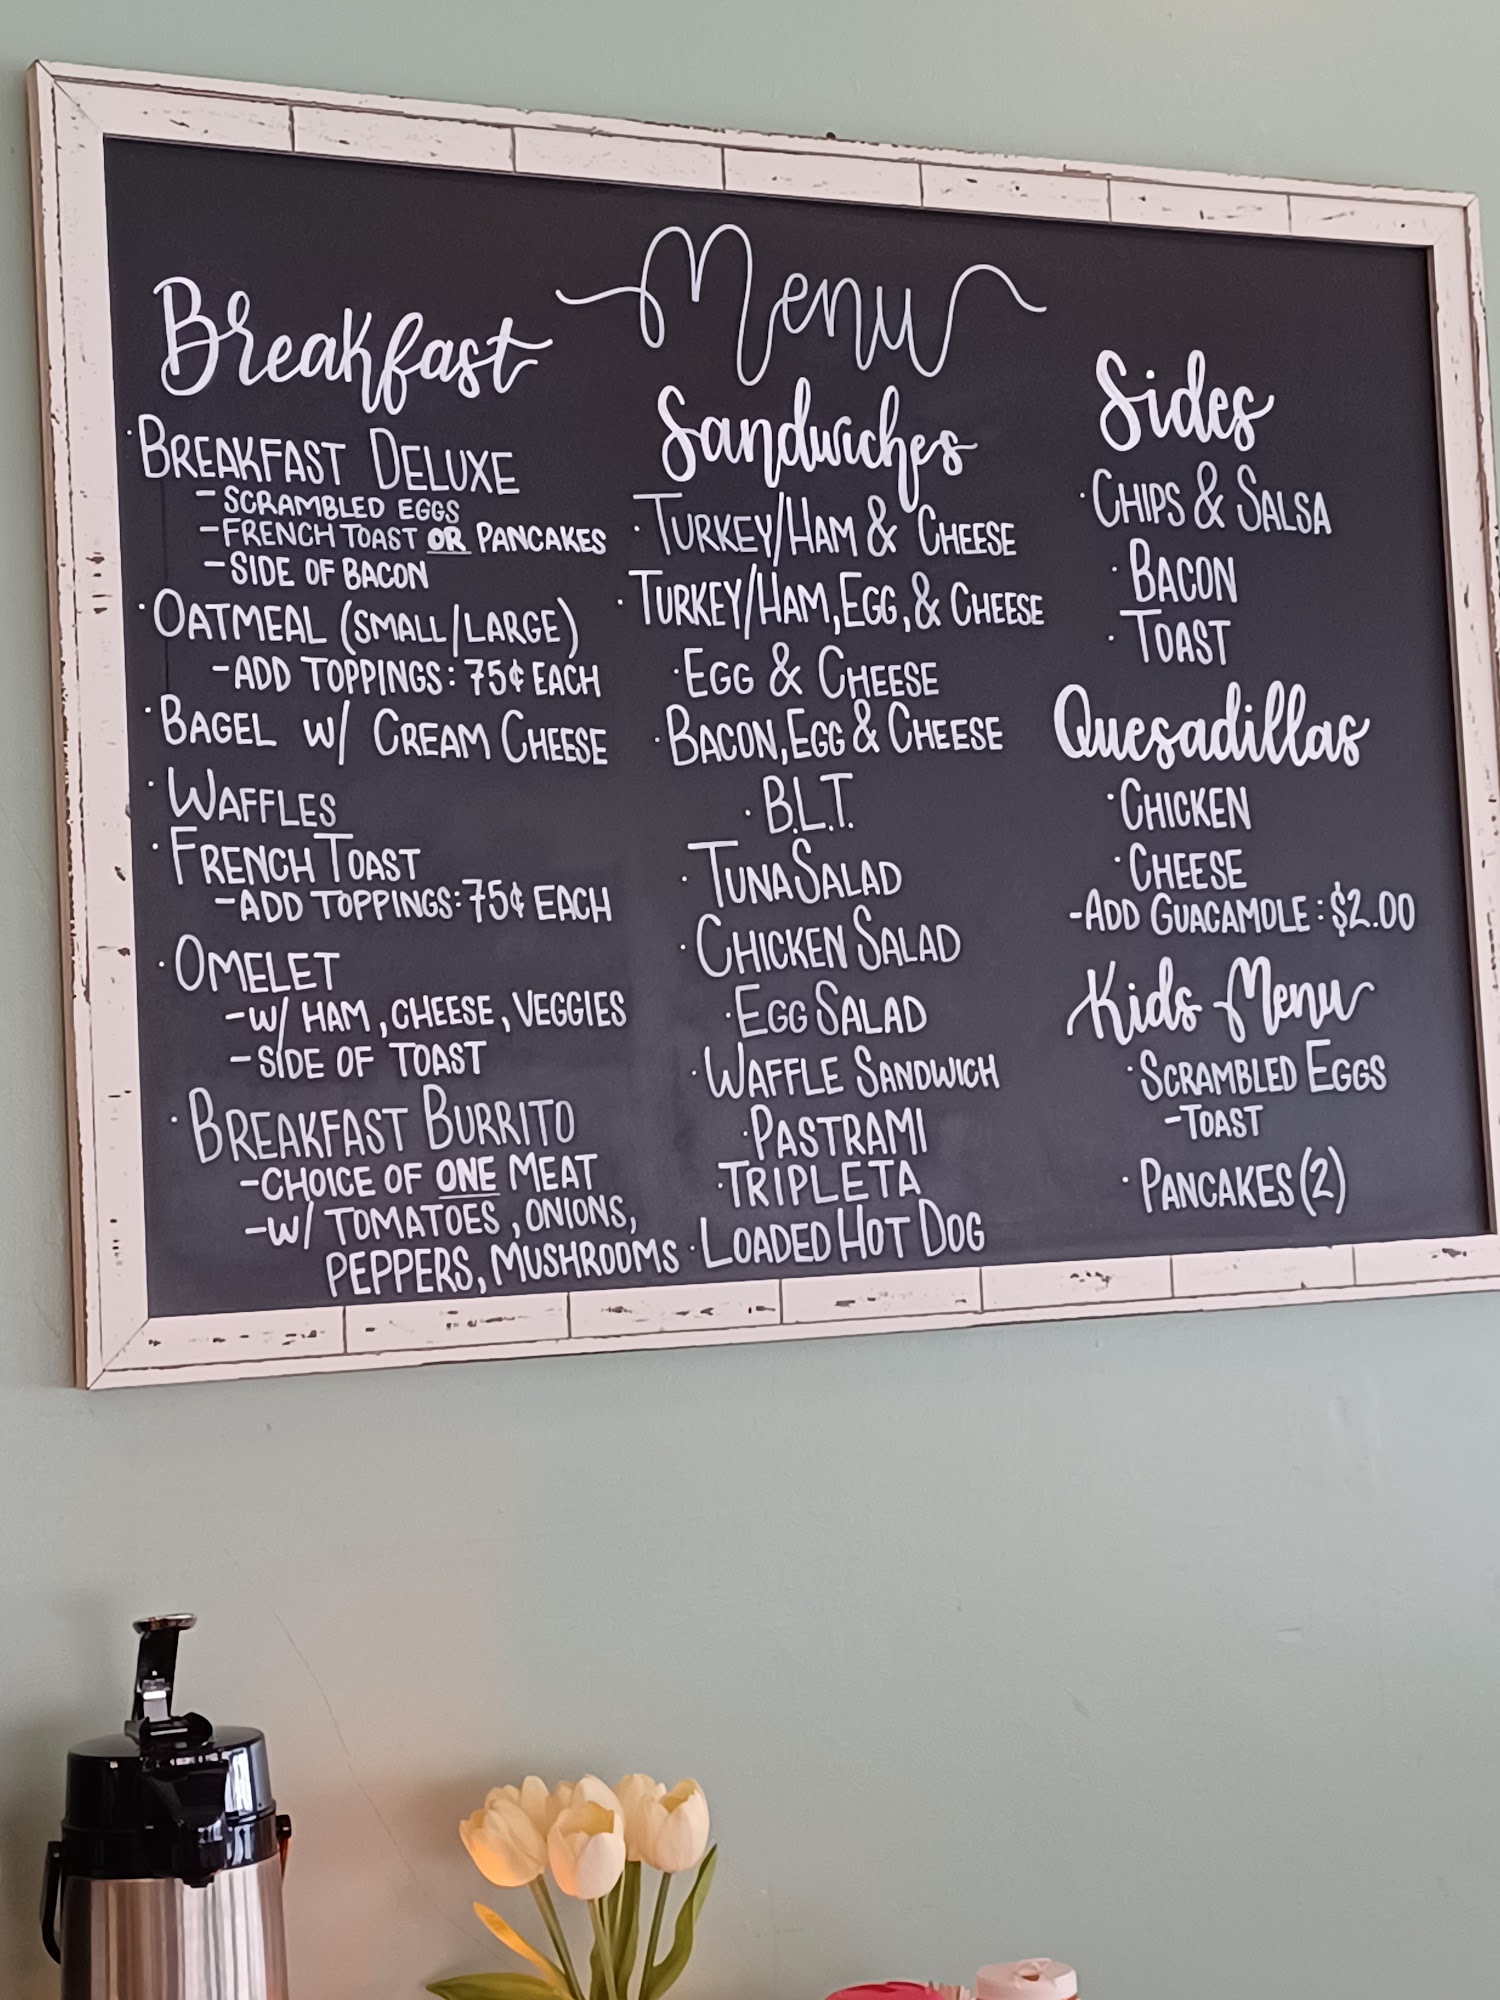 Menu
Breakfast
·BREAKFAST DELUXE
-SCRAMBLED EGGS
-FRENCH TOAST OR PANCAKES
-SIDE OF BACON
·OATMEAL (SMALL/LARGE)
-ADD TOPPINGS: 75¢ EACH
·BAGEL W/ CREAM CHEESE
·WAFFLES
·FRENCH TOAST
-ADD TOPPINGS: 75¢ EACH
·OMELET
-W/ HAM, CHEESE, VEGGIES
-SIDE OF TOAST
·BREAKFAST BURRITO
-CHOICE OF ONE MEAT
-W/ TOMATOES, ONIONS,
PEPPERS, MUSHROOMS
Sandwiches
·TURKEY/HAM & CHEESE
·TURKEY/HAM, EGG, & CHEESE
·EGG & CHEESE
·BACON, EGG & CHEESE
·B.L.T.
·TUNA SALAD
·CHICKEN SALAD
·EGG SALAD
·WAFFLE SANDWICH
·PASTRAMI
·TRIPLETA
·LOADED HOT DOG
Sides
·CHIPS & SALSA
·BACON
·TOAST
Quesadillas
·CHICKEN
·CHEESE
-ADD GUACAMOLE: $2.00
Kids Menu
·SCRAMBLED EGGS
-TOAST
·PANCAKES (2)